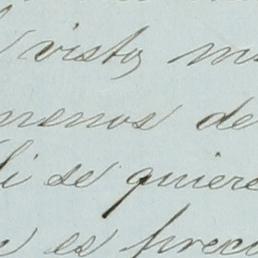 visto, m
menos de
li se quiere
es prec